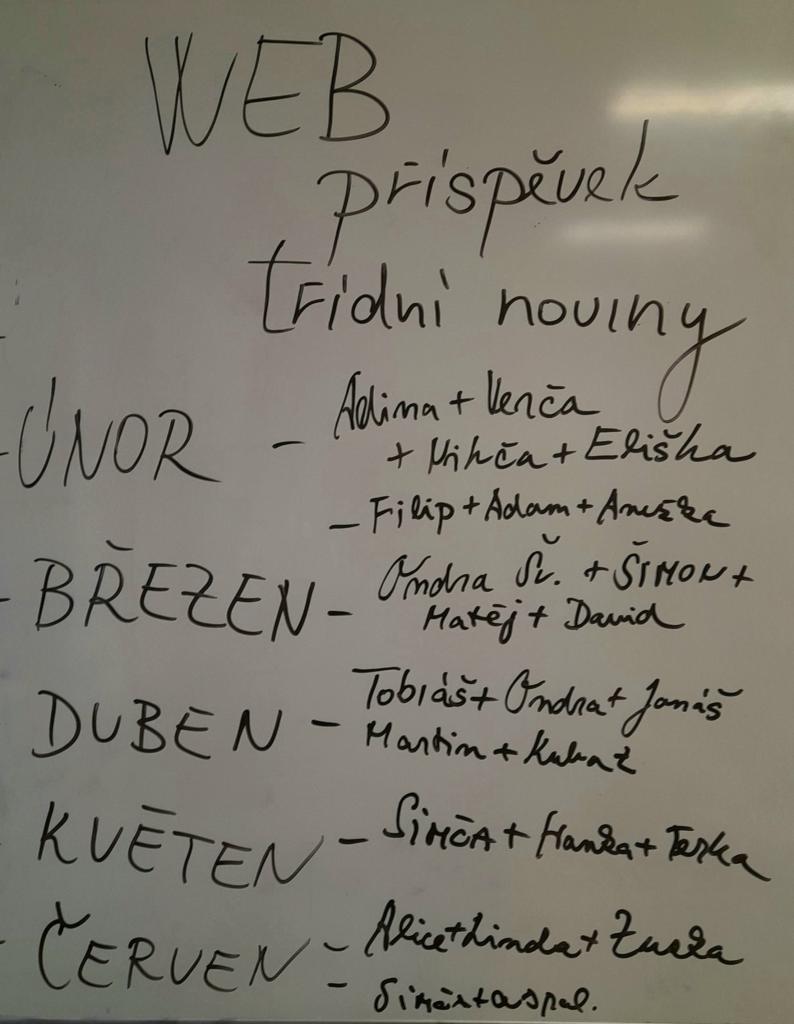 WEB
příspěvek
třídní noviny
ÚNOR - Adina + Verča
+ Mikča + Eliška
- Filip + Adam + Anežka
BŘEZEN - Ondra Šv. + ŠIMON +
Matěj + David
DUBEN - Tobiáš + Ondra + Jonáš
Martin + Kuba
KVĚTEN - SIMČA + Hanka + Terka
ČERVEN - Alice + Linda + Zuzka
-